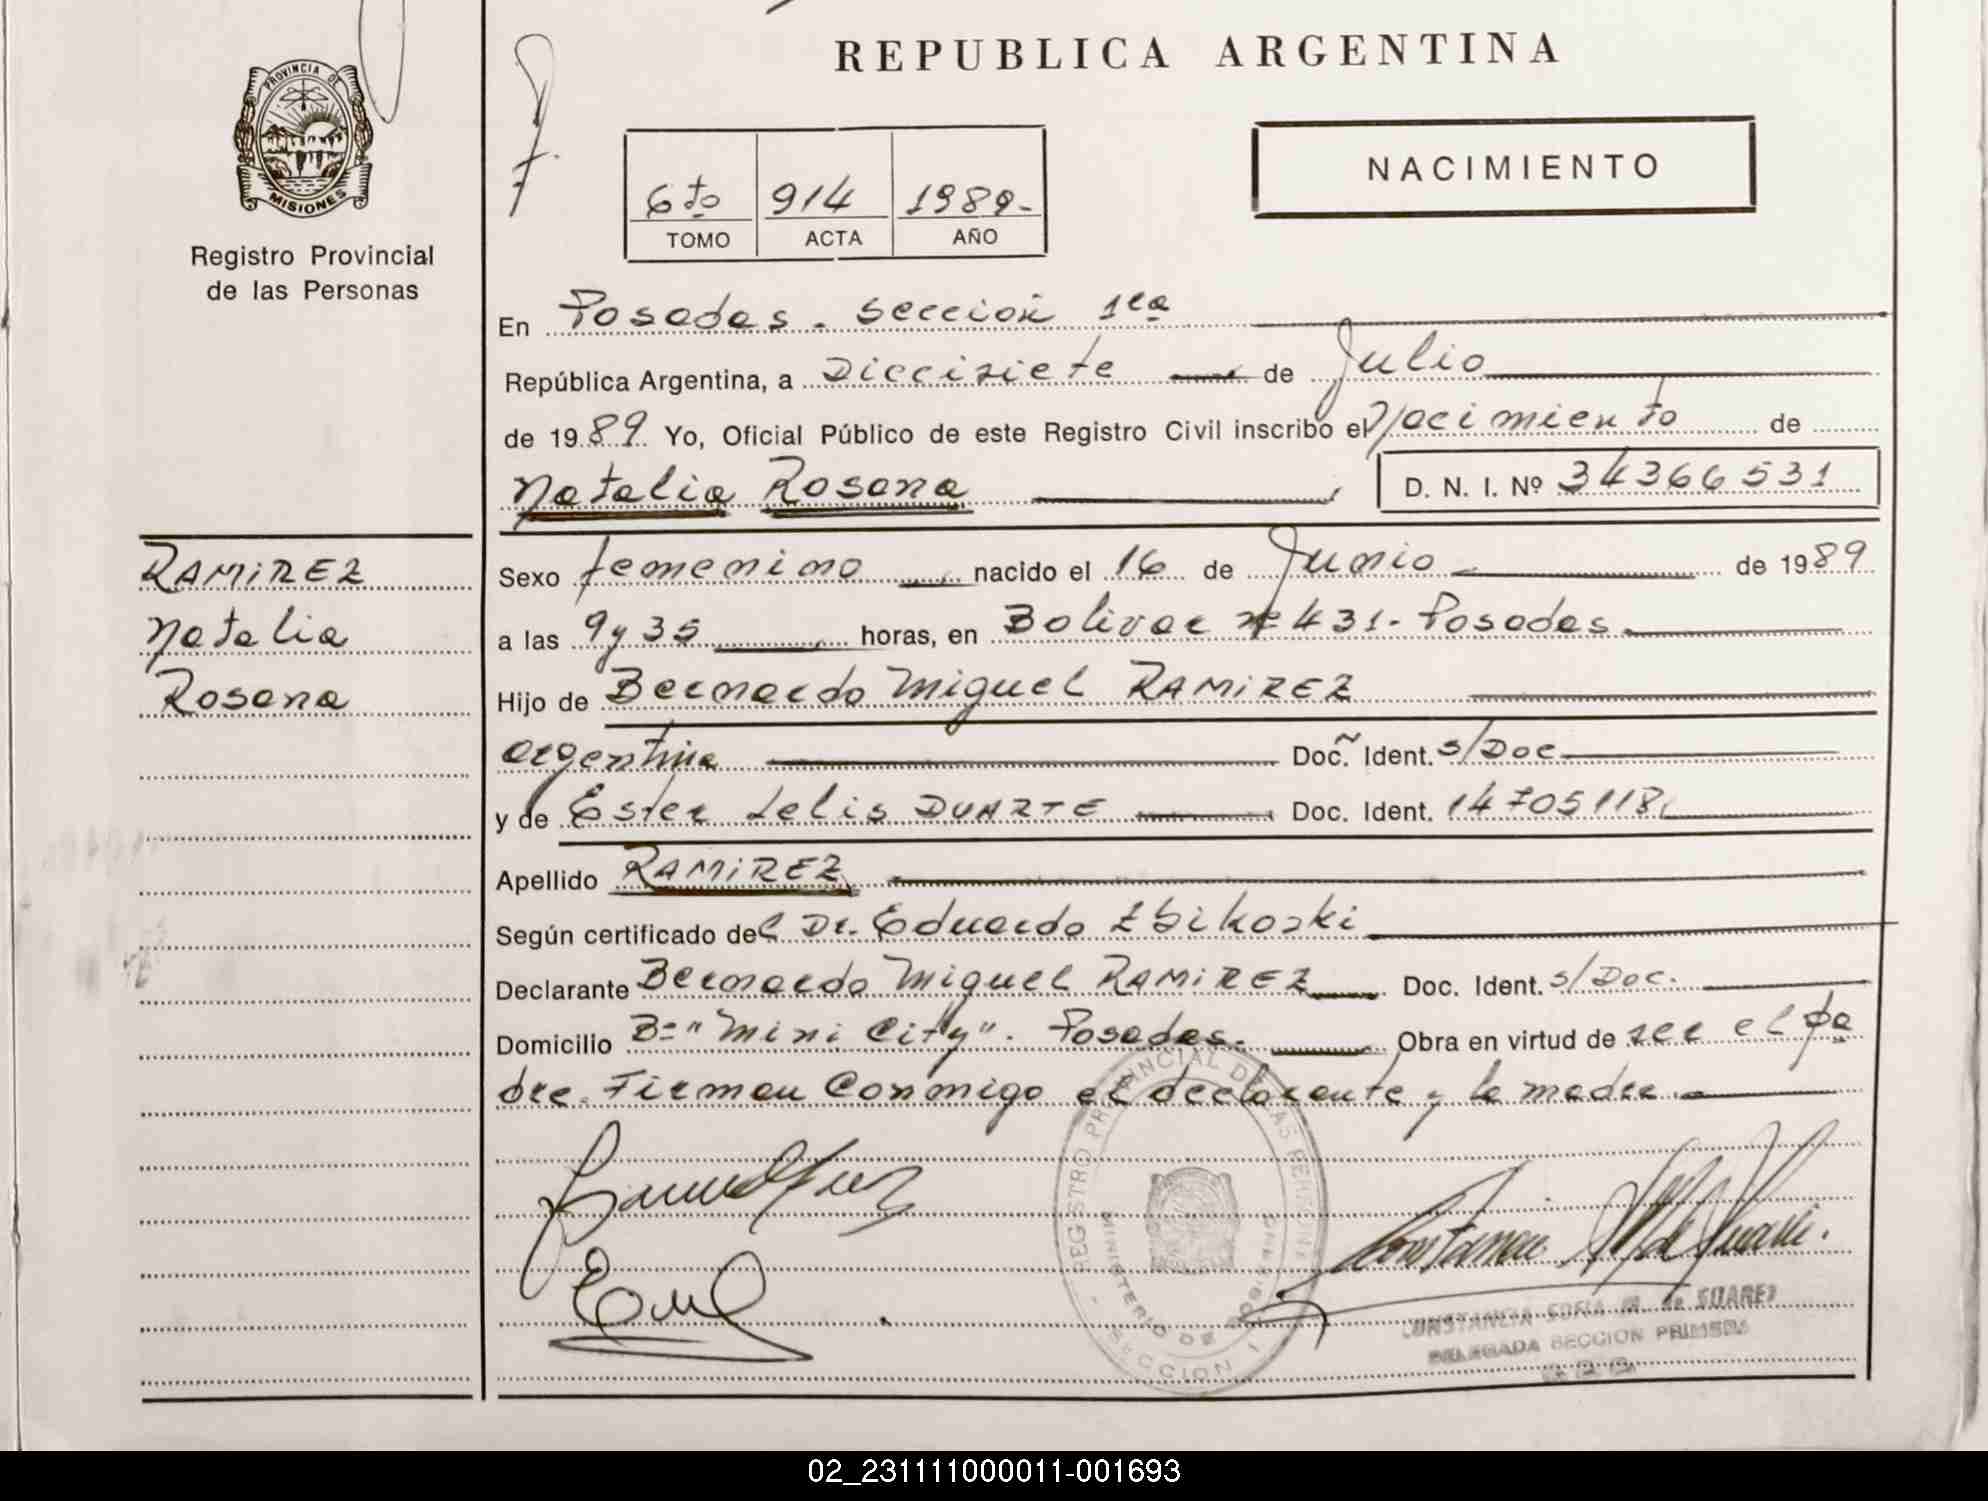 REPUBLICA ARGENTINA
PROVINCIA DE
MISIONES
Registro Provincial
de las Personas
6to 914 1989-
TOMO ACTA AÑO
NACIMIENTO
En Posadas. sección 1ra
República Argentina, a Diecisiete de Julio
de 1989 Yo, Oficial Público de este Registro Civil inscribo el Nacimiento de
Natalia Rosana D. N. I. Nº 34366531
RAMIREZ
Natalia
Rosana
Sexo femenino nacido el 16 de Junio de 1989
a las 9 y 35 horas, en Bolivar nº 431- Posadas
Hijo de Bernardo Miguel RAMIREZ
Argentina Doc. Ident. s/Doc
y de Ester Lelis DUARTE Doc. Ident. 14705118
Apellido RAMIREZ
Según certificado del Dr. Eduardo Zbikoski
Declarante Bernardo Miguel RAMIREZ Doc. Ident. s/Doc.
Domicilio Bº "Mini City". Posadas. Obra en virtud de ser el pa
dre. Firman Conmigo el declarante y la madre.
REGISTRO PROVINCIAL DE LAS PERSONAS
MINISTERIO DE GOBIERNO
- SECCION I -
CONSTANCIA SOFIA M. de SUAREZ
DELEGADA SECCION PRIMERA
02_231111000011-001693